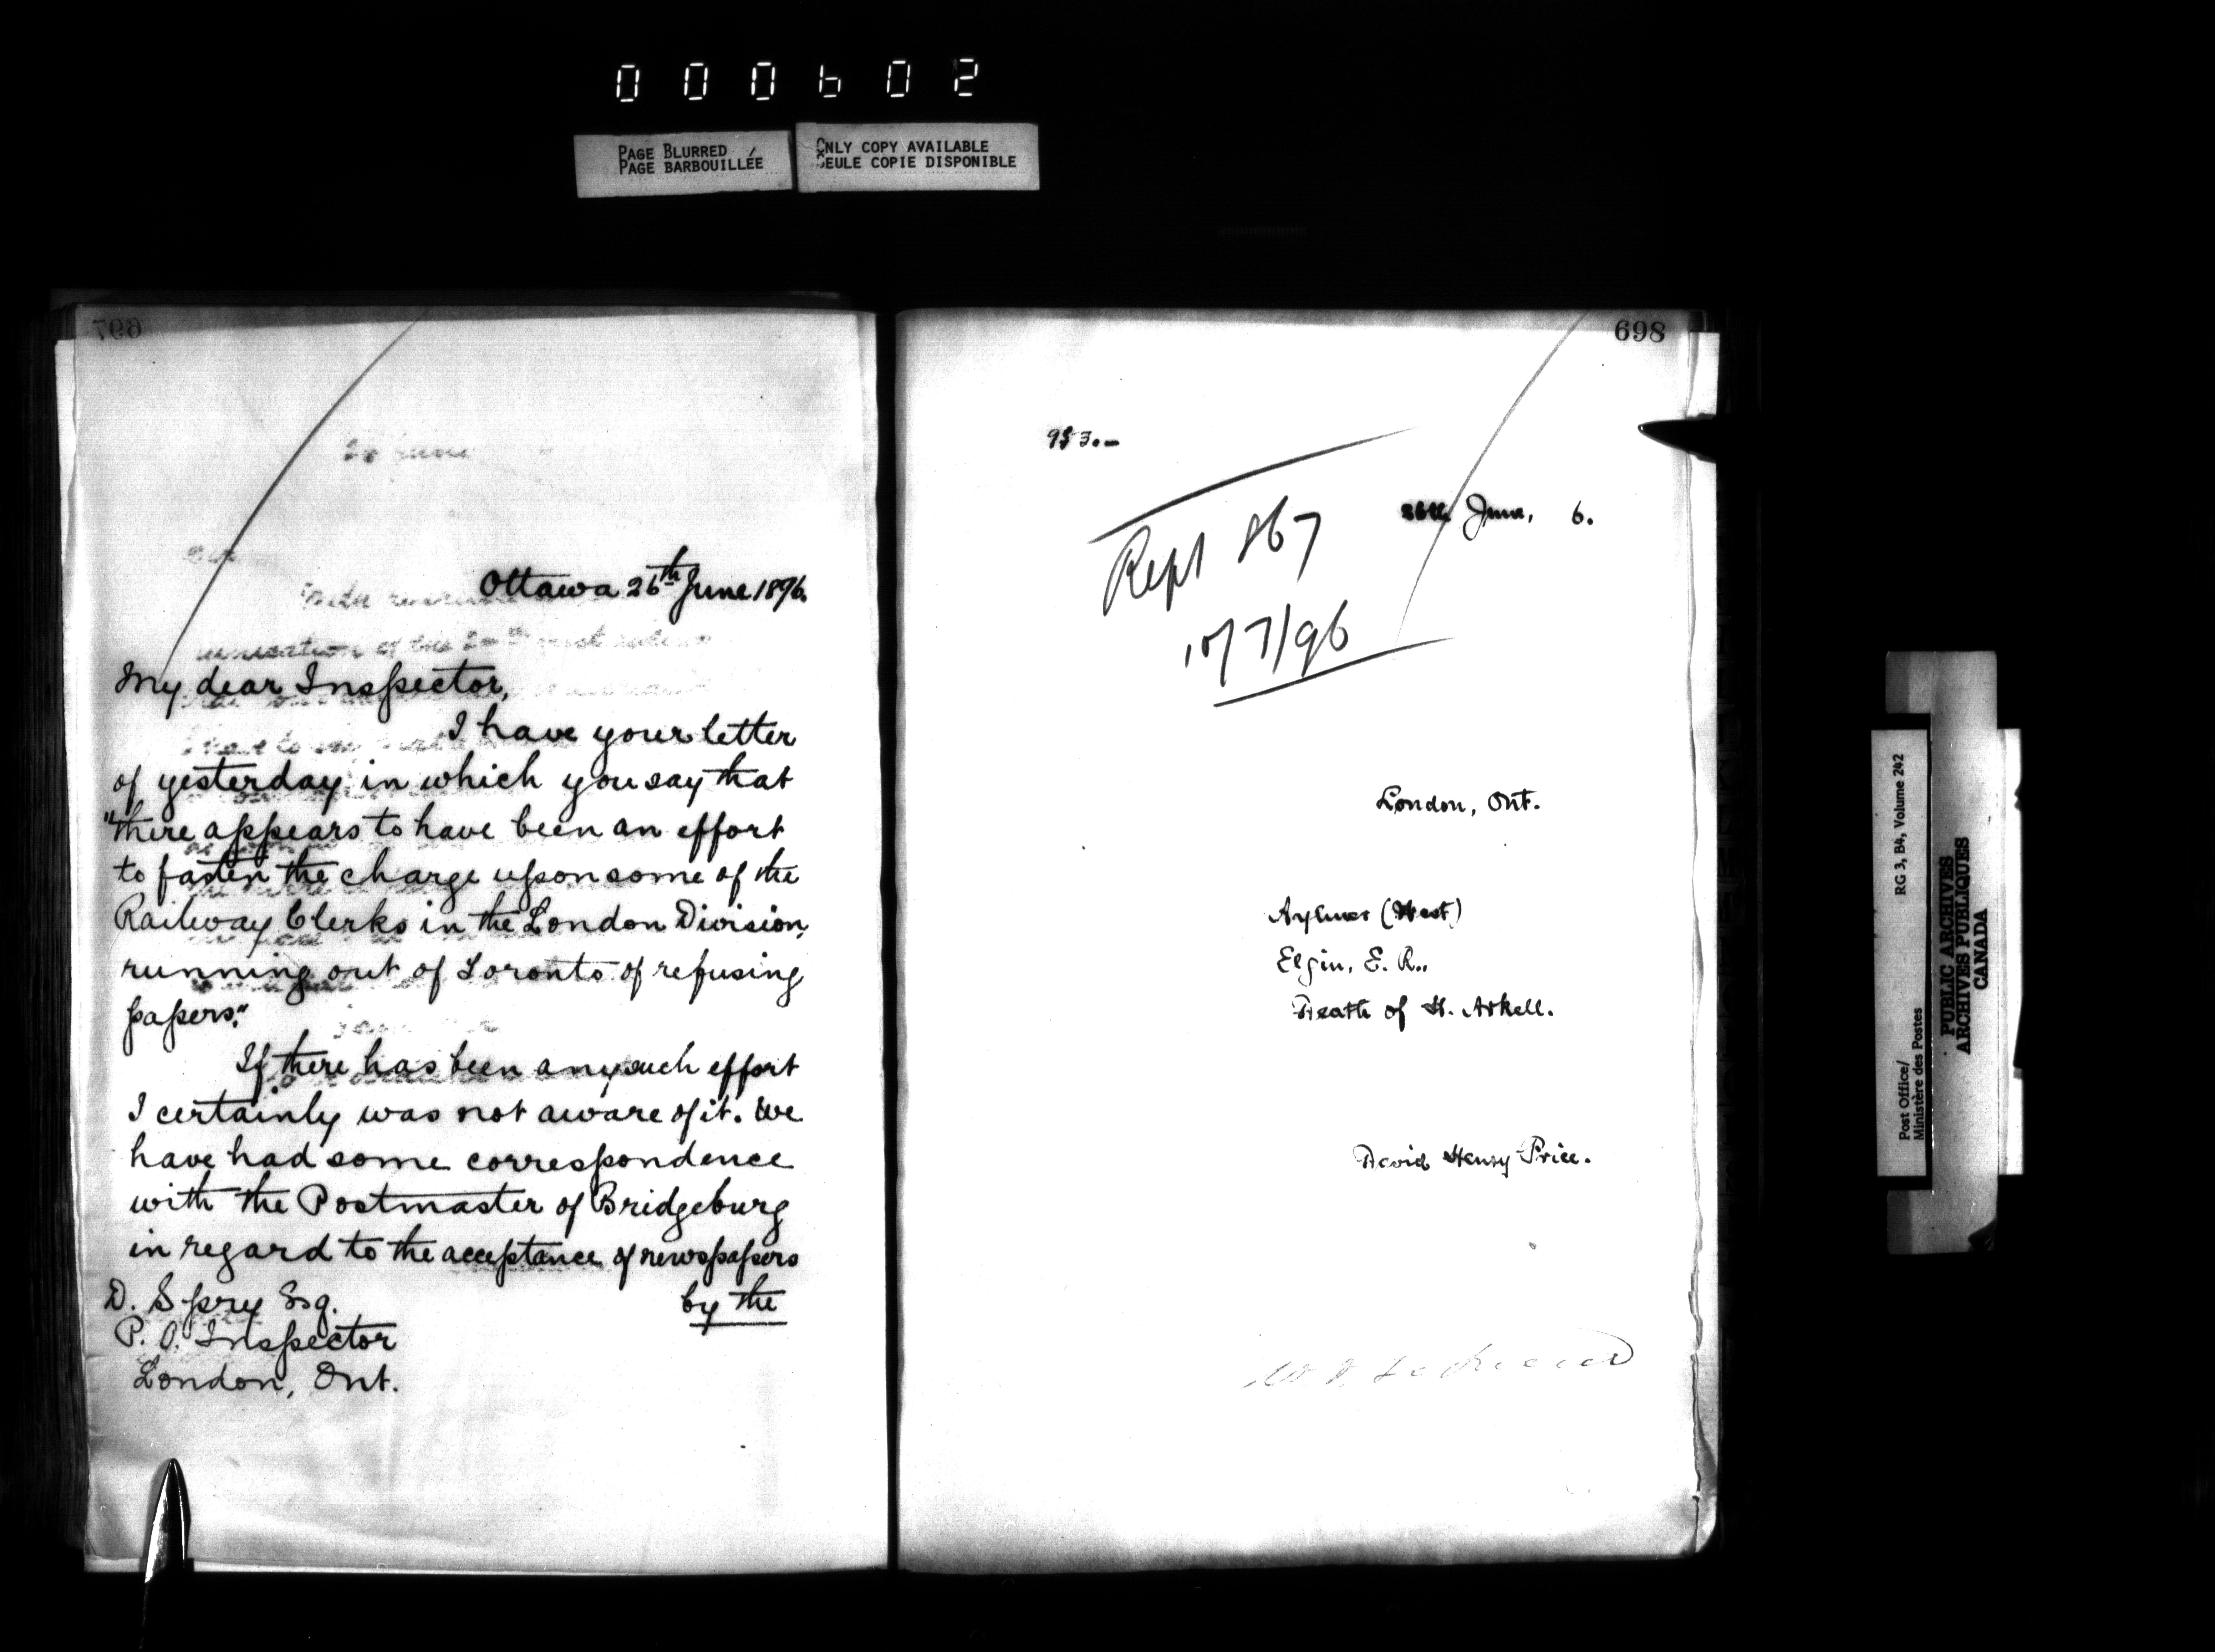 000602
PAGE BLURRED
PAGE BARBOUILLÉE
ONLY COPY AVAILABLE
SEULE COPIE DISPONIBLE
697
Ottawa 26th June 1896.
My dear Inspector,
I have your letter
of yesterday in which you say that
"there appears to have been an effort
to fasten the charge upon some of the
Railway Clerks in the London Division,
running out of Toronto of refusing
papers."
If there has been any such effort
I certainly was not aware of it. We
have had some correspondence
with the Postmaster of Bridgeburg
in regard to the acceptance of newspapers
by the
D. Spry Esq.
P. O. Inspector
London, Ont.
698
953.-
26th June, 6.
Rept 867
10/7/96
London, Ont.
Aylmer (West)
Elgin, E. R.,
Death of H. Arkell.
David Henry Price.
RG 3, B4, Volume 242
Post Office/
Ministère des Postes
PUBLIC ARCHIVES
ARCHIVES PUBLIQUES
CANADA